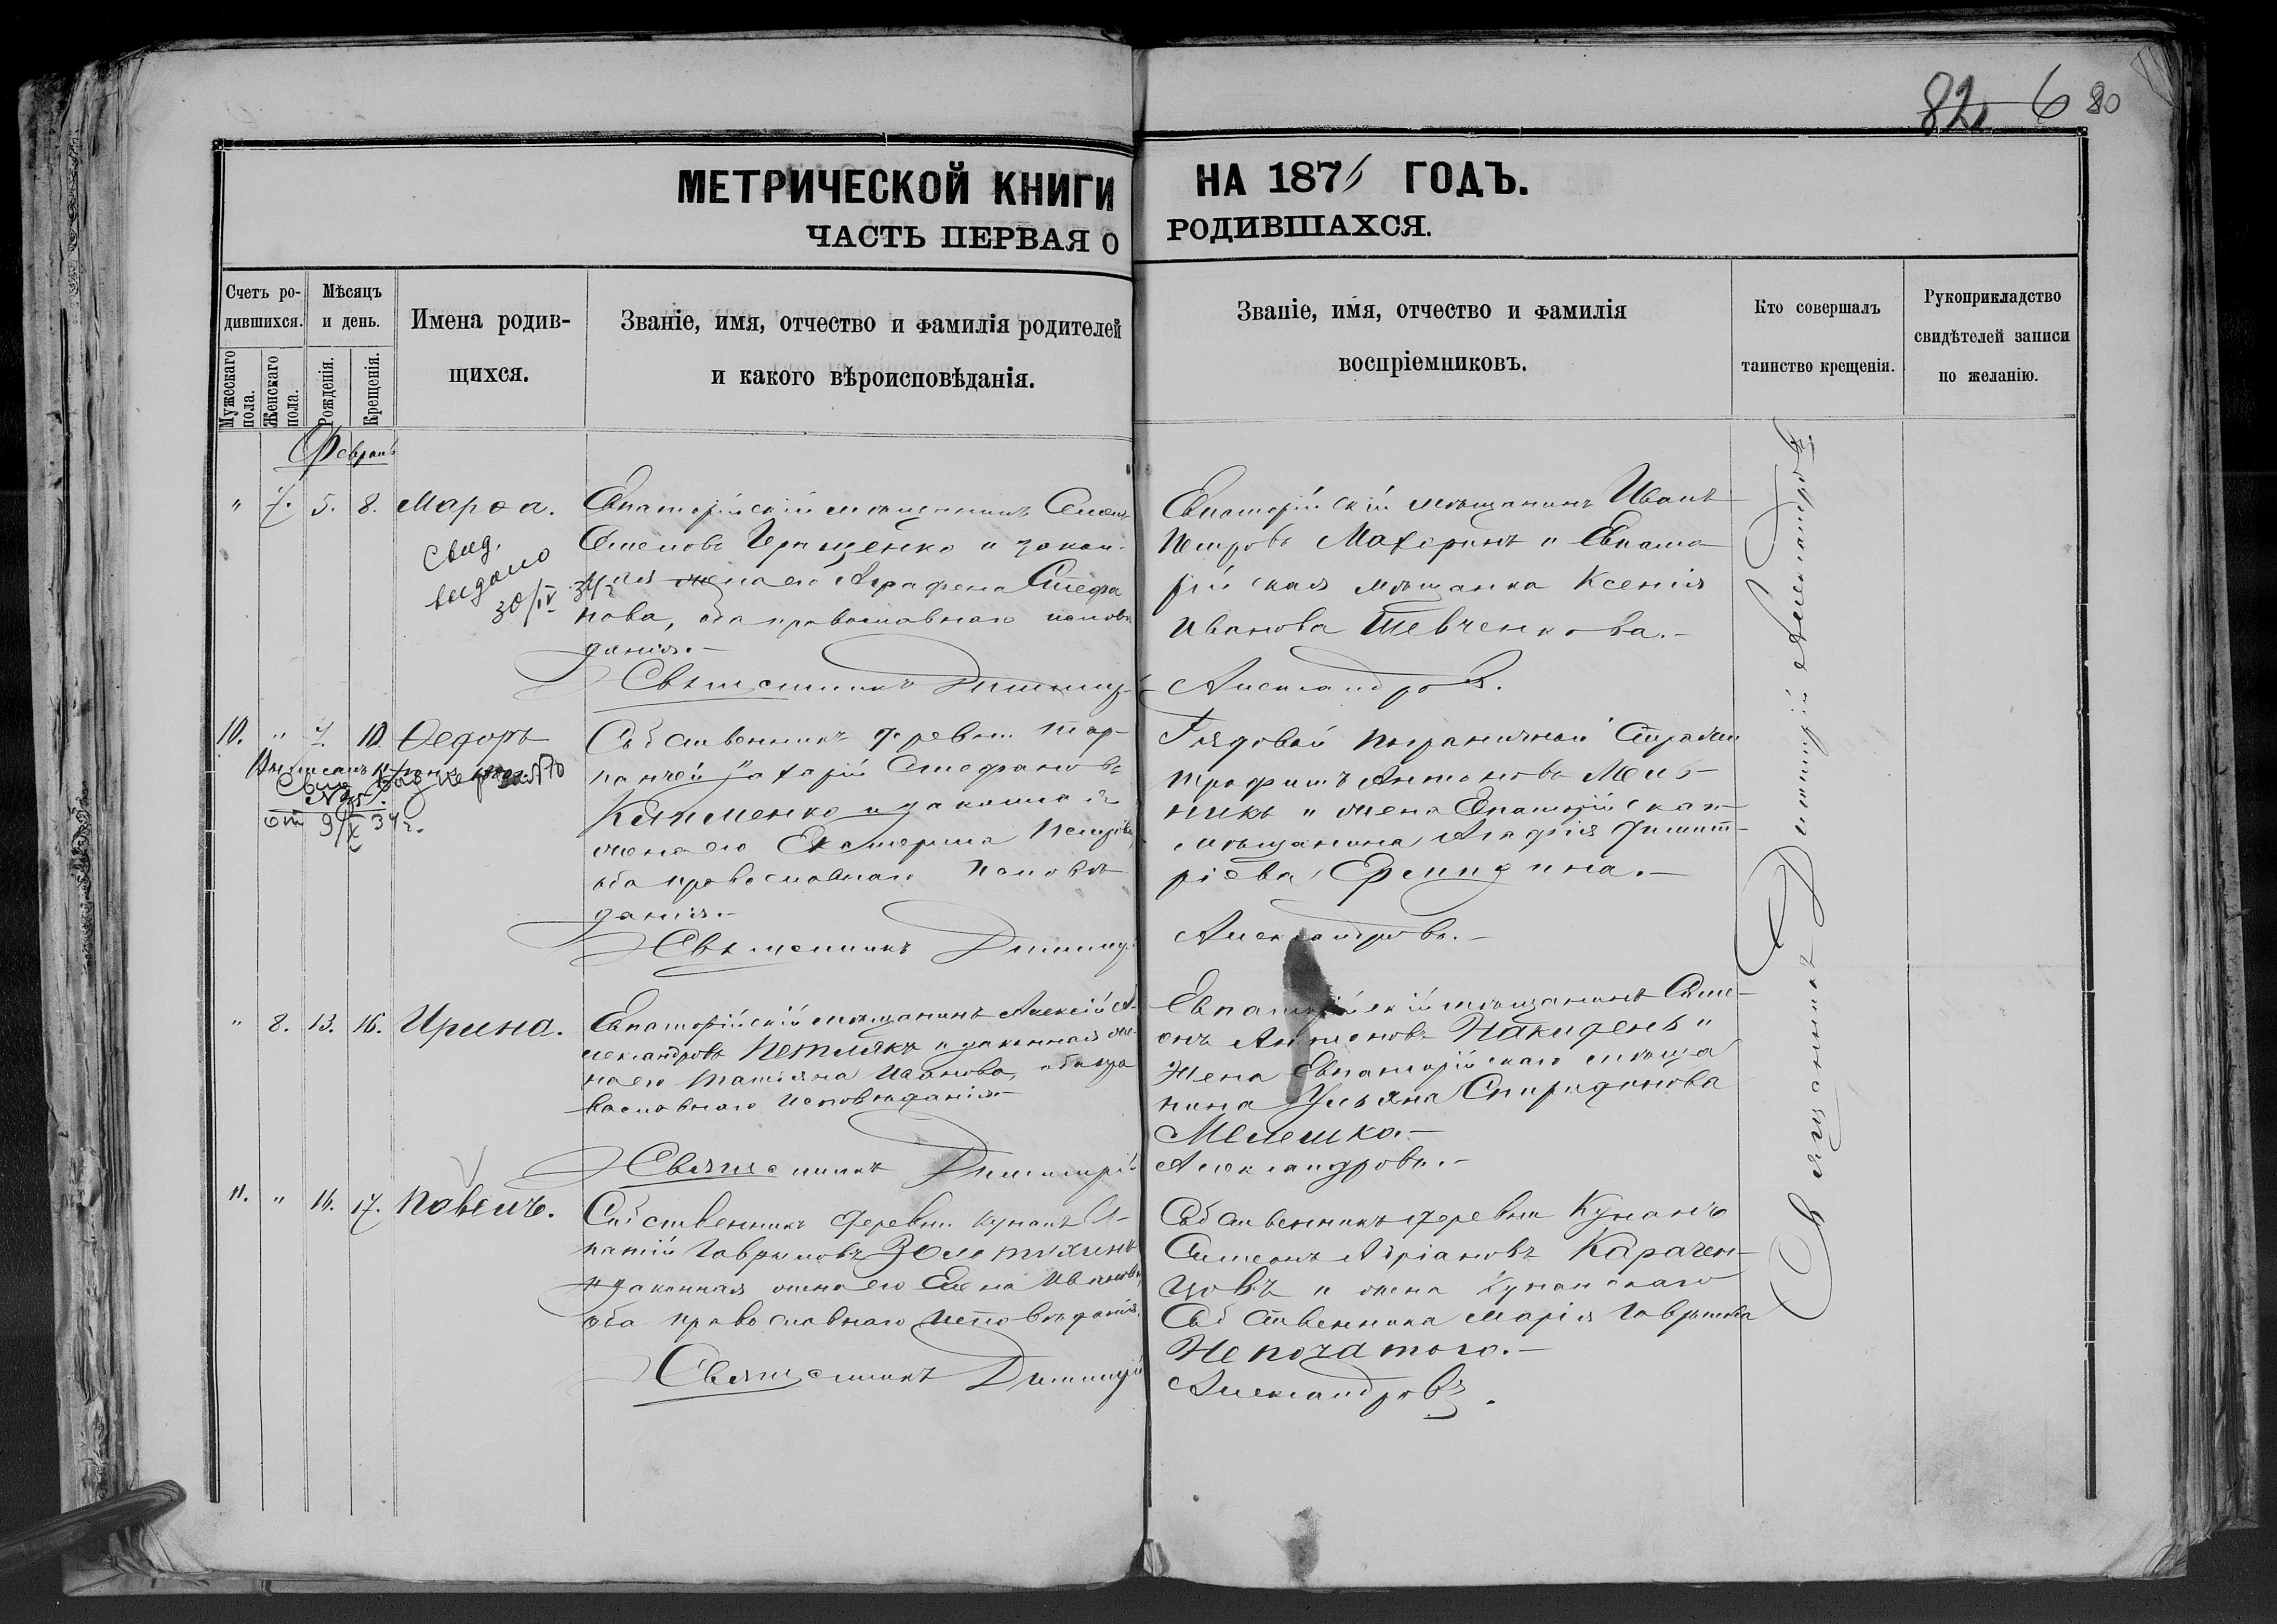 82 6 80
МЕТРИЧЕСКОЙ КНИГИ НА 1876 ГОДЪ.
ЧАСТЬ ПЕРВАЯ О РОДИВШАХСЯ.
Счетъ ро-
дившихся.
Мужескаго пола.
Женскаго пола.
Мѣсяцъ
и день.
Рожденія.
Крещенія.
Имена родив-
щихся.
Званіе, имя, отчество и фамилія родителей
и какого вѣроисповѣданія.
Званіе, имя, отчество и фамилія
воспріемниковъ.
Кто совершалъ
таинство крещенія.
Рукоприкладство
свидѣтелей записи
по желанію.
Февраль
" 7. 5. 8. Марѳа.
Свид.
видано
30/IV 34 г
Евпаторійскій мѣщанинъ Семенъ
Семеновъ и закон-
ная жена его Аграфена Стефа
нова, оба православнаго исповѣ
данія.-
Священникъ Димитрій
Евпаторійскій мѣщанинъ Иванъ
Петровъ Махоринъ и Евпато-
рійская мѣщанка Ксенія
Иванова Шевченкова.-
Александровъ.
10. " 7. 10. Ѳедоръ
от 9/X 34 г.
Собственникъ деревни Тар-
панчей Захарій Стефановъ
Клименко и законная
жена его Екатерина Петрова,
оба православнаго исповѣ-
данія.-
Священникъ Димитрій
Рядовой пограничной Стражи
Трофимъ Антоновъ Мель-
никъ и жена Евпаторійскаго
мѣщанина Агафія Димит-
ріева.-
Александровъ.-
" 8. 13. 16. Ирина.
Евпаторійскій мѣщанинъ Алексій Ал-
лександровъ Петлякъ и законная же-
на его Татіана Иванова, оба пра
вославнаго исповѣданія.-
Священникъ Димитрій
Евпаторійскій мѣщанинъ Симе-
онъ Антоновъ Накидень и
жена Евпаторійскаго мѣща
нина Ульяна Спиридонова
Мелешко.-
Александровъ.-
11. " 14. 17. Павелъ.
Собственникъ деревни Кунанъ И-
патій Гавриловъ Золотухинъ
и законная жена его Елена Иванова,
оба православнаго исповѣданія.
Священникъ Димитрій
Собственникъ деревни Кунанъ
Симеонъ Адріановъ Карачен-
цовъ и жена Кунанскаго
Собственника Марія Гаврилова
Непочатого.-
Александровъ.
Священникъ Димитрій Александровъ.